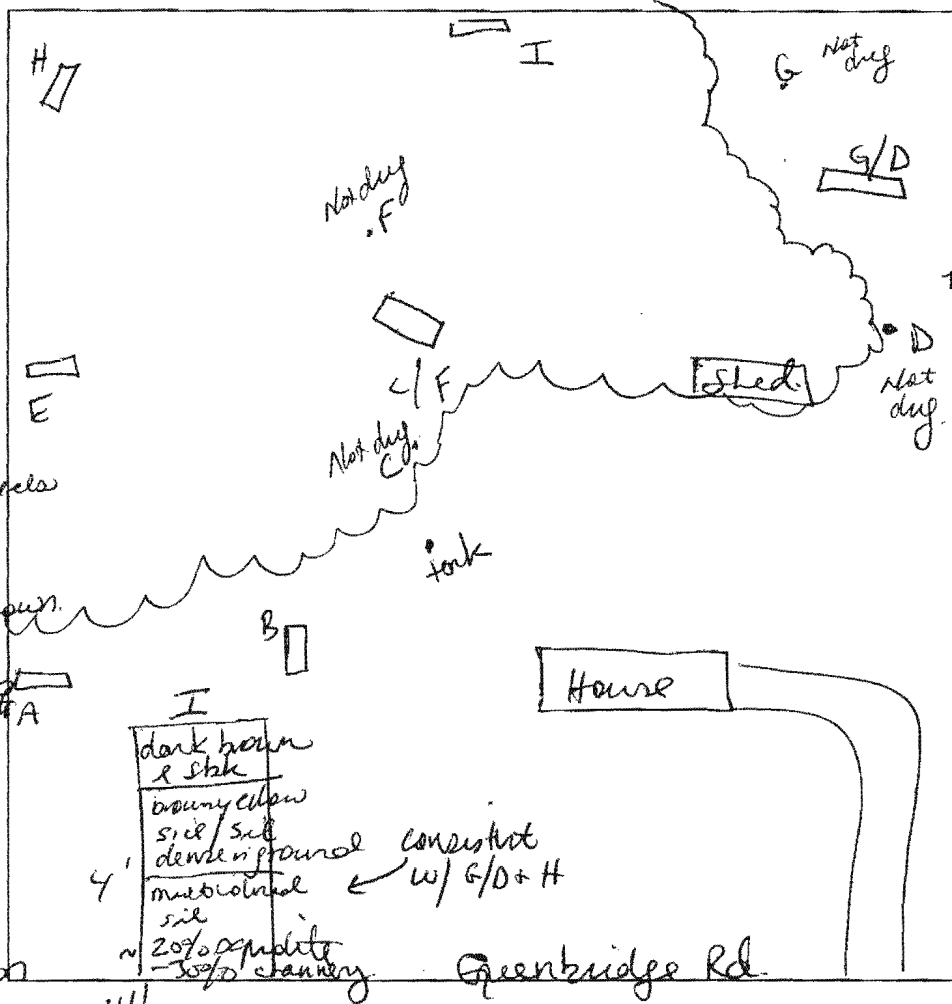 H
I
G Not dug
G/D
Not dug
F
E
C/F
Shed
D
Not dug.
Not dug
C
tank
B
A
House
I
dark brown
l sbk
brown yellow
sicl / sil
dense in ground
4'
multicolored
sil
~ 20%
-30% channery
consistent
w/ G/D + H
Greenbridge Rd